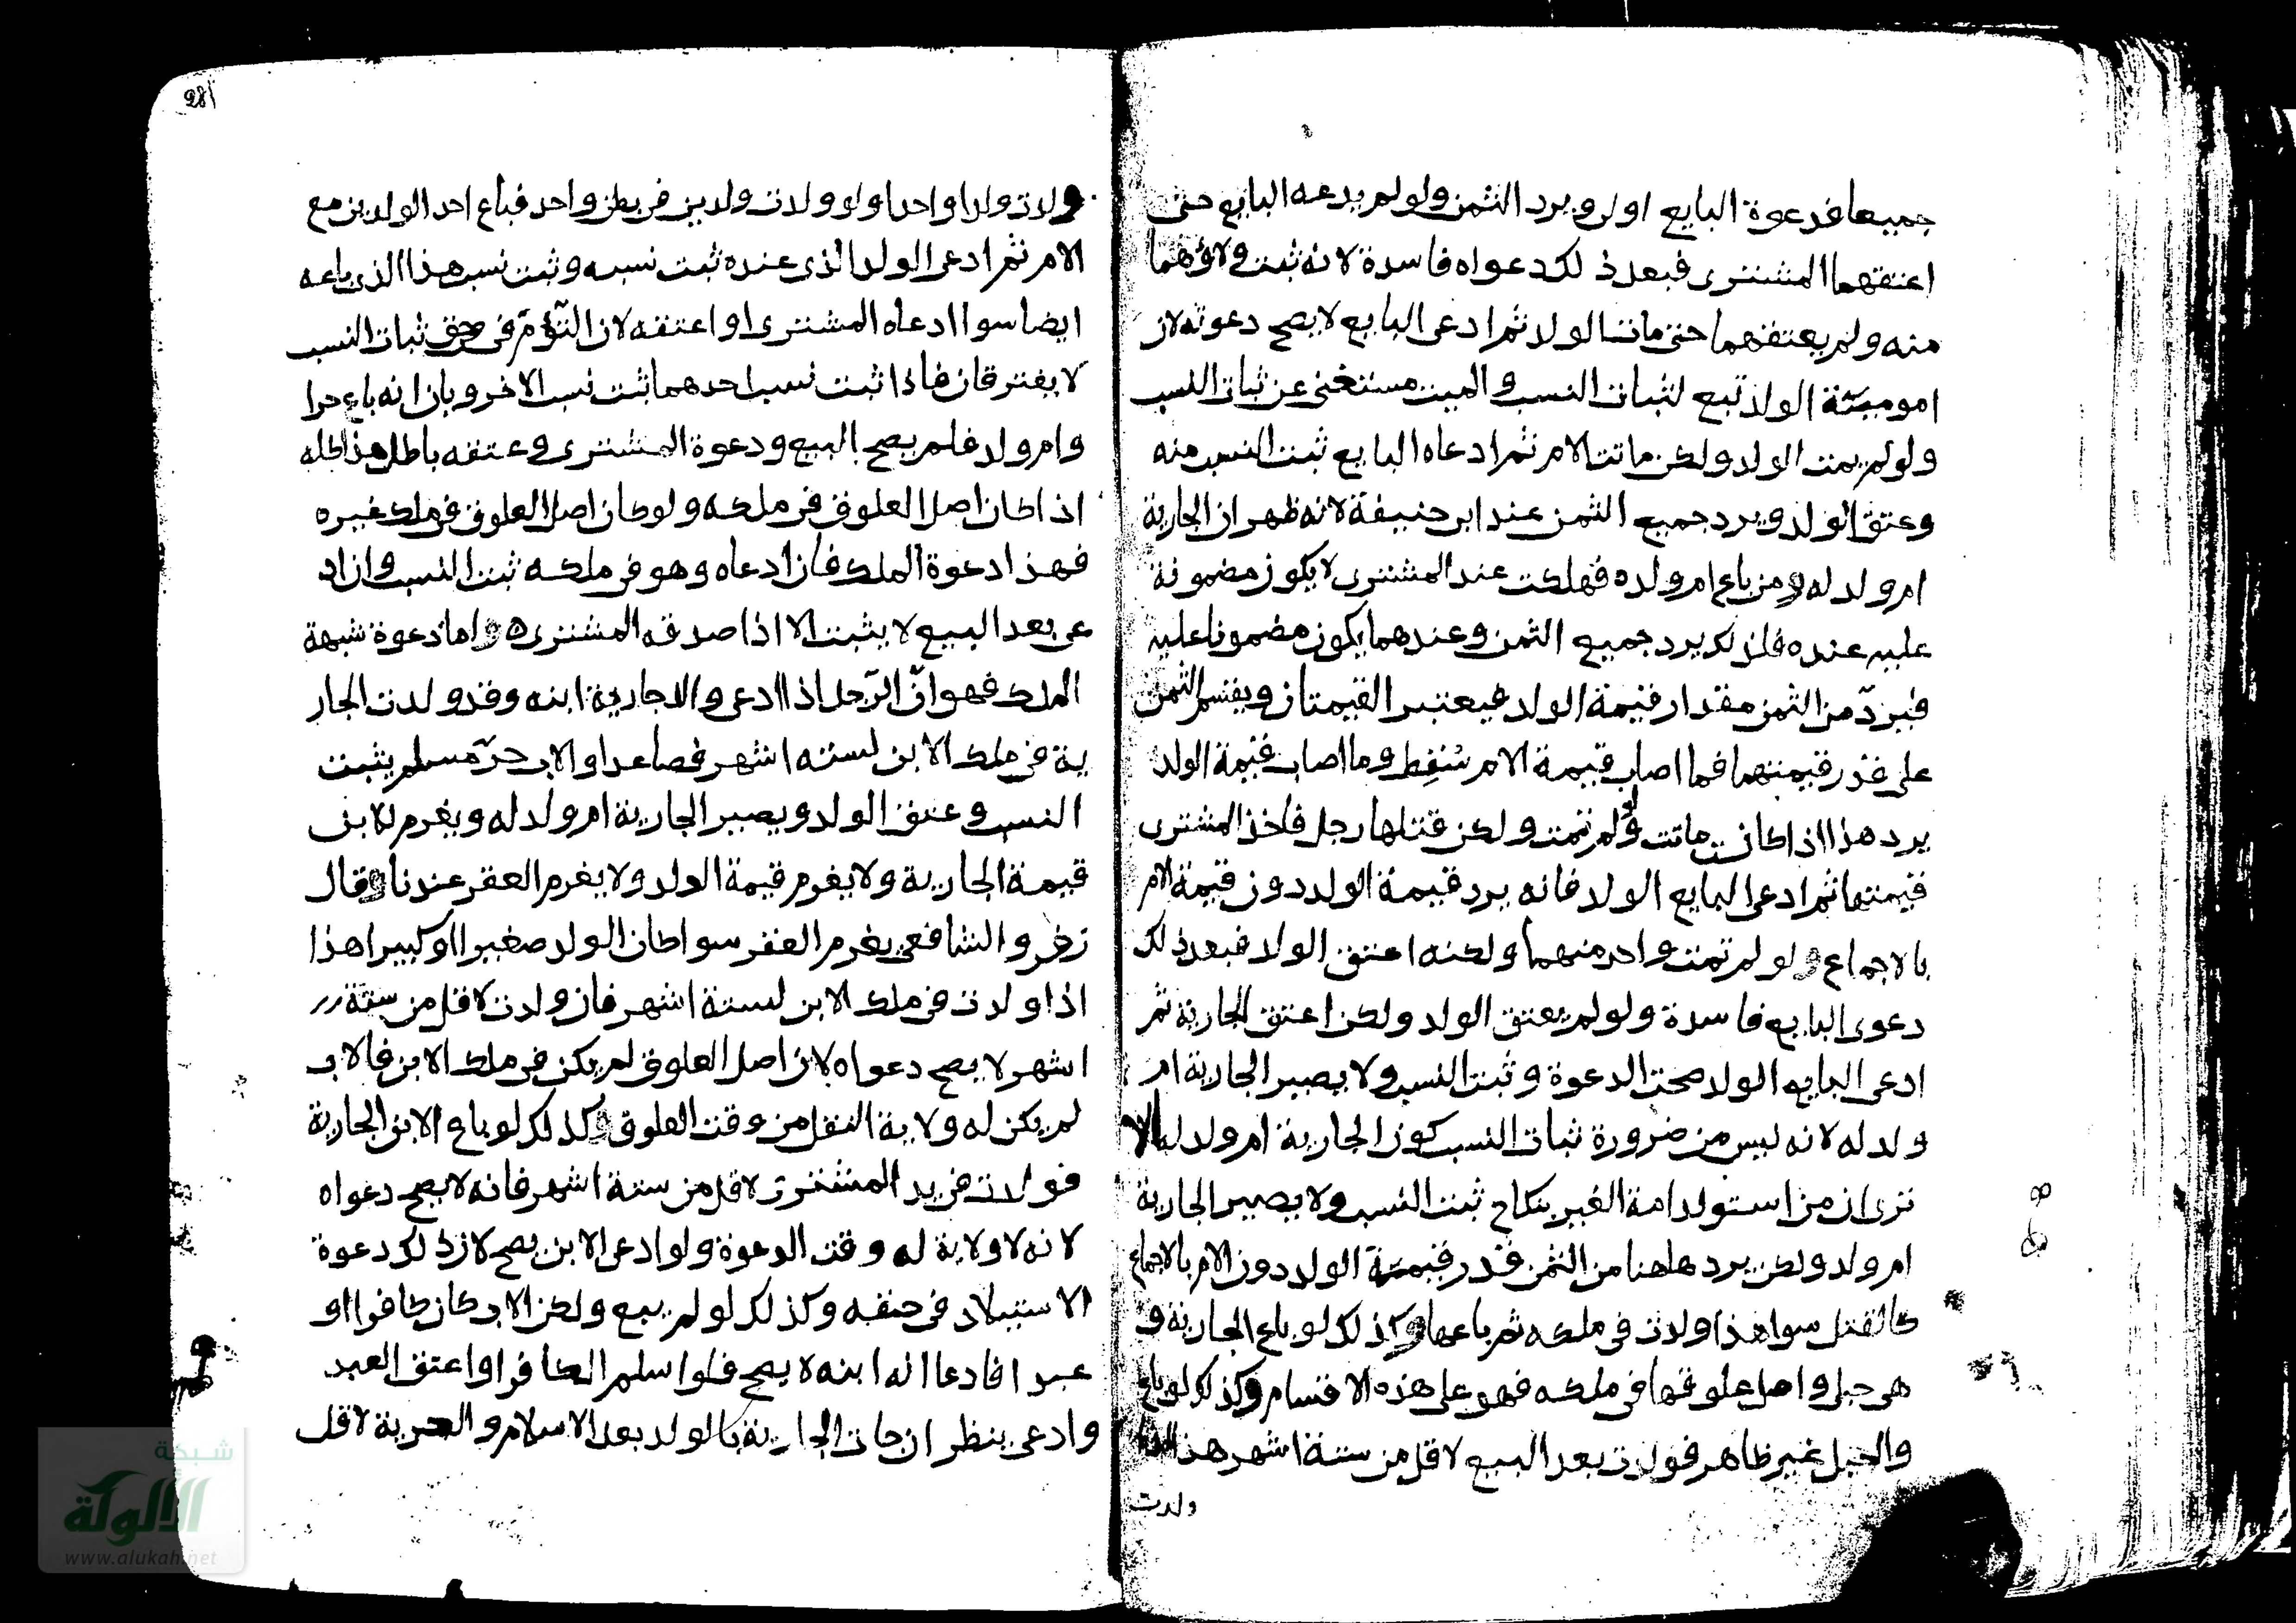 جميعا فدعوة البايع اولى ويرد الثمن ولو لم يدعه البايع حتى
اعتقهما المشترى فبعد ذلك دعواه فاسدة لانه ثبت ولاؤهما
منه ولم يعتقهما حتى مات الولد ثم ادعى البايع لا يصح دعوته لان
امومية الولد تبع لثبات النسب والميت مستغنى عن ثبات النسب
ولو لم يمت الولد ولكن ماتت الام ثم ادعاه البايع ثبت النسب منه
وعتق الولد ويرد جميع الثمن عند ابى حنيفة لانه ظهر ان الجارية
ام ولد له ومن باع ام ولده فهلكت عند المشترى لا يكون مضمونة
عليه عنده فلذلك يرد جميع الثمن وعندهما يكون مضمونا عليه
فيردّ من الثمن مقدار قيمة الولد فيعتبر القيمتان ويقسم الثمن
على قدر قيمتهما فما اصاب قيمة الام سقط وما اصاب قيمة الولد
يرد هذا اذا كانت ماتت ولو لم تمت ولكن قتلها رجل فاخذ المشترى
قيمتها ثم ادعى البايع الولد فانه يرد قيمة الولد دون قيمة الام
بالاجماع ولو لم تمت واحد منهما ولكنه اعتق الولد فبعد ذلك
دعوى البايع فاسدة ولو لم يعتق الولد ولكن اعتق الجارية ثم
ادعى البايع الولد صحت الدعوة وثبت النسب ولا يصير الجارية ام
ولد له لانه ليس من ضرورة ثبات النسب كون الجارية ام ولد له الا
ترى ان من استولد امة الغير بنكاح ثبت النسب ولا يصير الجارية
ام ولد ولكن يرد هاهنا من الثمن قدر قيمة الولد دون الام بالاجماع
كالقتل سوا هذا ولدت فى ملكه ثم باعها وكذلك لو باع الجارية و
هى حبلى واصل علوقها فى ملكه فهو على هذه الاقسام وكذلك لو باع
والحبل غير ظاهر فولدت بعد البيع لاقل من ستة اشهر هذا اذا
ولدت
981
ولدت ولدا واحدا ولو ولدت ولدين فى بطن واحد فباع احد الولدين مع
الام ثم ادعى الولد الذى عنده ثبت نسبه وثبت نسب هذا الذى باعه
ايضا سوا ادعاه المشترى او اعتقه لان التوّم فى حق ثبات النسب
لا يفترقان فاذا ثبت نسب احدهما ثبت نسب الاخر وبان انه باع حرا
وام ولد فلم يصح البيع ودعوة المشترى وعتقه باطل هذا كله
اذا كان اصل العلوق فى ملكه ولو كان اصل العلوق فى ملك غيره
فهذا دعوة الملك فان ادعاه وهو فى ملكه ثبت النسب وان اد
عى بعد البيع لا يثبت الا اذا صدقه المشترى واما دعوة شبهة
الملك فهو انّ الرّجل اذا ادعى ولد جارية ابنه وقد ولدت الجار
ية فى ملك الابن لستة اشهر فصاعدا والاب حرّ مسلم يثبت
النسب وعتق الولد ويصير الجارية ام ولد له ويغرم للابن
قيمة الجارية ولا يغرم قيمة الولد ولا يغرم العقر عندنا وقال
زفر والشافعى يغرم العقر سوا كان الولد صغيرا او كبيرا هذا
اذا ولدت فى ملك الابن لستة اشهر فان ولدت لاقل من ستة
اشهر لا يصح دعواه لان اصل العلوق لم يكن فى ملك الابن فالاب
لم يكن له ولاية النقل من وقت العلوق وكذلك لو باع الابن الجارية
فولدت فى يد المشترى لاقل من ستة اشهر فانه لا يصح دعواه
لانه لا ولاية له وقت الدعوة ولو ادعى الابن يصح لان ذلك دعوة
الاستيلاد فى حقه وكذلك لو لم يبع ولكن الاب كان كافرا او
عبدا فادعا انه ابنه لا يصح فلو اسلم الكافر او اعتق العبد
وادعى ينظر ان جات الجارية بالولد بعد الاسلام والحرية لاقل
شبكة
الألوكة
www.alukah.net